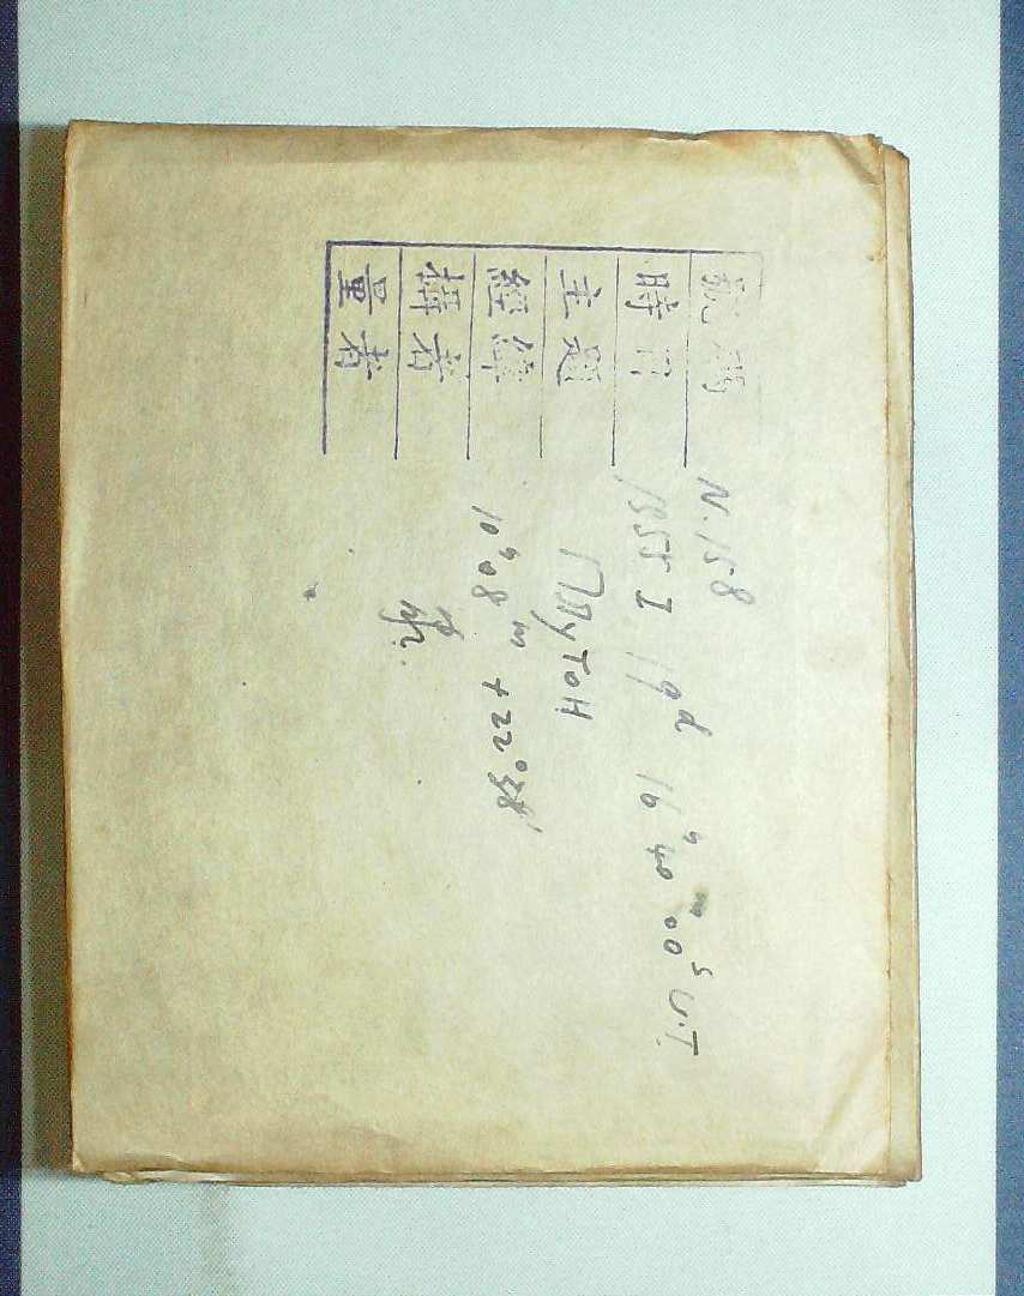 號碼 N. 158
時日 1955 I 19d 16h 40m 00s U.T.
主題 Плутон
經緯 10h08m +22°38'
攝者
量者